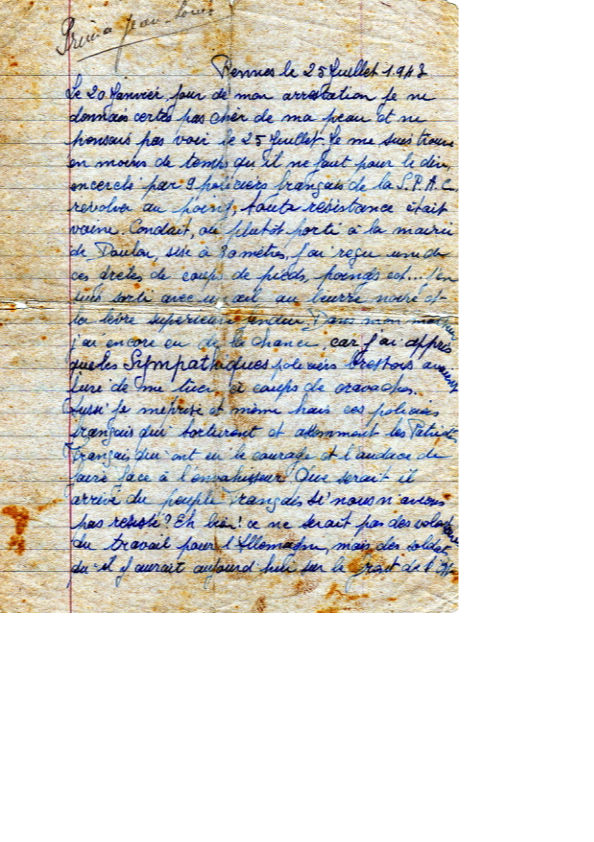 Jean-Louis
Rennes le 25 Juillet 1943
Le 20 Janvier, jour de mon arrestation je ne
donnais certes pas cher de ma peau et ne
pensais pas voir le 25 Juillet. Je me suis trouvé
en moins de temps qu'il ne faut pour le dire
encerclé par 9 policiers français de la S.P.A.C.
revolver au poing, toute résistance était
vaine. Conduit, ou plutôt porté à la mairie
de Doulon, sise à mètres, j'ai reçu une de
ces de coups de pieds, poings est... J'en
suis sorti avec un œil au beurre noire et
la lèvre supérieure fendue. Dans mon malheur
j'ai encore eu de la chance, car j'ai appris
que les Sympathiques policiers brestois avaient
juré de me tuer à coups de cravaches.
Aussi je méprise et même hais ces policiers
français qui torturent et assomment les Patriotes
Français qui ont eu le courage et l'audace de
faire face à l'envahisseur. Que serait il
arrivé du peuple Français si nous n'avions
pas résisté? Eh bien! ce ne serait pas des volontaires
du travail pour l'Allemagne, mais des soldats
qu'il y aurait aujourd'hui sur le front de l'